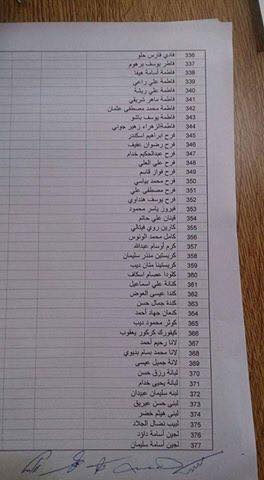 336 فادي فارس حلو
337 فاطر يوسف برهوم
338 فاطمة أسامة هيفا
339 فاطمة علي راعي
340 فاطمة علي ريشة
341 فاطمة ماهر شريقي
342 فاطمة محمد مصطفى عثمان
343 فاطمة يوسف باشو
344 فاطمةالزهراء زهير جوني
345 فرح ابراهيم اسكندر
346 فرح رضوان عفيف
347 فرح عبدالحكيم خدام
348 فرح علي العلي
349 فرح فواز قاسم
350 فرح محمد بياسي
351 فرح مصطفى علي
352 فرح يوسف هنداوي
353 فيروز ياسر محمود
354 فينان علي حاتم
355 كارين روي فيتالي
356 كامل محمد الونوس
357 كرم أوسام عبدالله
358 كريستين منذر سليمان
359 كريستينا منان ديب
360 كلودا عصام إسكاف
361 كنانة علي اسماعيل
362 كندا عيسى العوض
363 كندة جمال حسن
364 كنعان جهاد أحمد
365 كوثر محمود ديب
366 كيفورك كركور يعقوب
367 لانا رحيم أحمد
368 لانا محمد بسام بديوي
369 لانة جميل عيسى
370 لبانة رزق حسن
371 لبانة يحيى خدام
372 لبنه سليمان عبيدان
373 لبنى حسن عبريق
374 لبنى هيثم خضر
375 لبيب نضال الجلاد
376 لجين أسامة داؤد
377 لجين أسامة سليمان